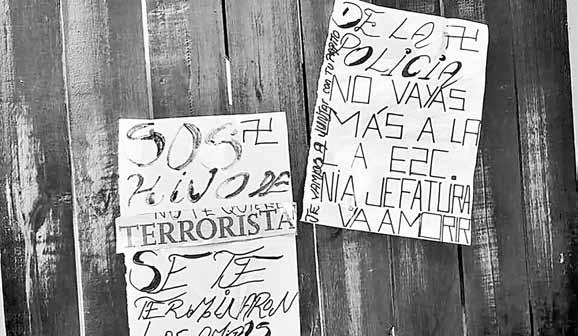 SOS 卐
HIJO DE
NO TE QUIERE
TERRORISTA
SE TE
TERMINARON
LOS
DE LA 卐
POLICIA
NO VAYAS
MÁS A LA
F A EZC.
NI A JEFATURA
VA A MORIR
TE VAMOS A JUNTAR CON TU PAPITO